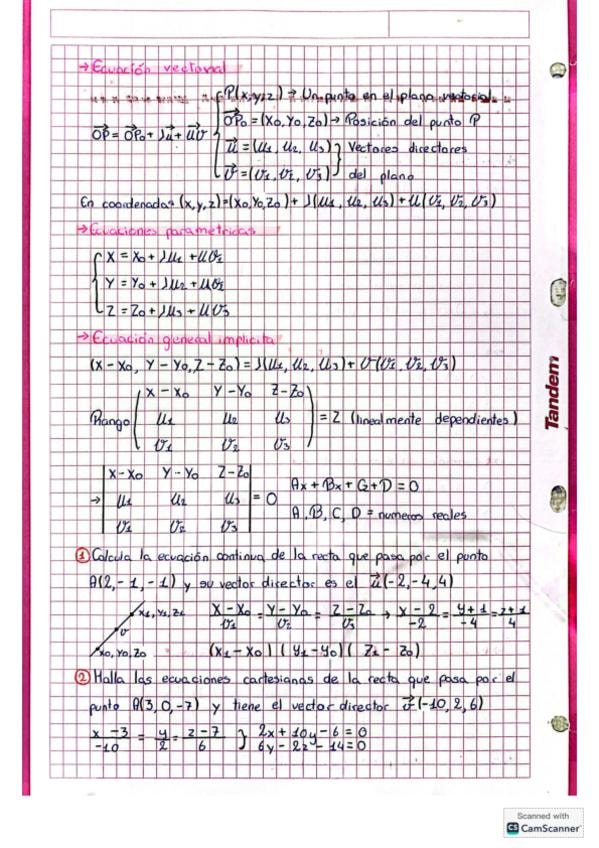 → Ecuación vectorial
P(x,y,z) → Un punto en el plano vectorial.
OP = OP₀ + λu + μv
OP₀ = (X₀, Y₀, Z₀) → Posición del punto P
u = (u₁, u₂, u₃) } Vectores directores
v = (v₁, v₂, v₃) } del plano
En coordenadas (x,y,z)=(X₀,Y₀,Z₀)+ λ(u₁, u₂, u₃)+ μ(v₁, v₂, v₃)
→ Ecuaciones parametricas
X = X₀ + λu₁ + μv₁
Y = Y₀ + λu₂ + μv₂
Z = Z₀ + λu₃ + μv₃
→ Ecuación general implicita
(X - X₀, Y - Y₀, Z - Z₀) = λ(u₁, u₂, u₃) + v(v₁, v₂, v₃)
X - X₀ Y - Y₀ Z - Z₀
Rango u₁ u₂ u₃ = 2 (linealmente dependientes)
v₁ v₂ v₃
X - X₀ Y - Y₀ Z - Z₀
Ax + Bx + G + D = 0
→ u₁ u₂ u₃ = 0
A, B, C, D = numeros reales
v₁ v₂ v₃
① Calcula la ecuación continua de la recta que pasa por el punto
A(2, -1, -1) y su vector director es el u(-2, -4, 4)
X₁, Y₁, Z₁
X - X₀ / v₁ = Y - Y₀ / v₂ = Z - Z₀ / v₃ → x - 2 / -2 = y + 1 / -4 = z + 1 / 4
v
X₀, Y₀, Z₀
(X₁ - X₀) (Y₁ - Y₀) (Z₁ - Z₀)
② Halla las ecuaciones cartesianas de la recta que pasa por el
punto A(3, 0, -7) y tiene el vector director v(-10, 2, 6)
x - 3 / -10 = y / 2 = z - 7 / 6 } 2x + 10y - 6 = 0
6y - 2z - 14 = 0
Tandem
Scanned with
CS CamScanner